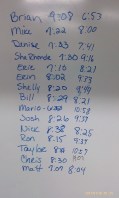 Brian 9308 6:53
Mike 7:22 8:00
Denise 7:33 7:41
ShaRhonda 7:30 9:16
Eric 7:10 8:21
Erin 8:02 9:19
Shelly 8:20 8:29
Bill 8:29 8:21
Mario 10:58
Josh 8:26 9:37
Nick 8:38 8:25
Ron 8:15 9:37
Taylor 10:57
Chris 8:30
Matt 7:09 8:04